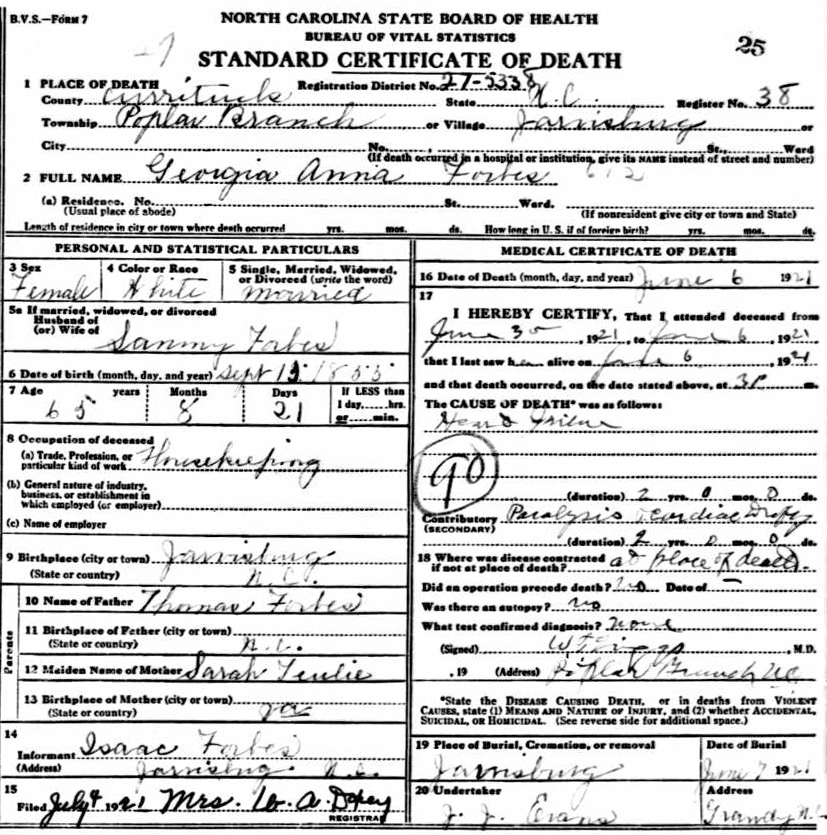 B.V.S.—FORM 7
NORTH CAROLINA STATE BOARD OF HEALTH
BUREAU OF VITAL STATISTICS
STANDARD CERTIFICATE OF DEATH
25
1 PLACE OF DEATH Registration District No. 27-5338
County Currituck State N.C. Register No. 38
Township Poplar Branch or Village Jarvisburg or
City No. St., Ward
(If death occurred in a hospital or institution, give its NAME instead of street and number)
2 FULL NAME Georgia Anna Forbes 612
(a) Residence. No. St. Ward.
(Usual place of abode) (If nonresident give city or town and State)
Length of residence in city or town where death occurred yrs. mos. ds. How long in U.S. if of foreign birth? yrs. mos. ds.
PERSONAL AND STATISTICAL PARTICULARS
3 Sex 4 Color or Race 5 Single, Married, Widowed, or Divorced (write the word)
Female White Married
5a If married, widowed, or divorced
Husband of
(or) Wife of Sammy Forbes
6 Date of birth (month, day, and year) Sept 15 1855
7 Age years Months Days If LESS than
1 day,......hrs.
65 8 21 or......min.
8 Occupation of deceased
(a) Trade, Profession, or
particular kind of work Housekeeping
(b) General nature of industry,
business, or establishment in
which employed (or employer)
(c) Name of employer
9 Birthplace (city or town) Jarvisburg
(State or country) N.C.
Parents
10 Name of Father Thomas Forbes
11 Birthplace of Father (city or town)
(State or country) N.C.
12 Maiden Name of Mother Sarah
13 Birthplace of Mother (city or town)
(State or country)
14
Informant Isaac Forbes
(Address) Jarvisburg N.C.
15
Filed July 4 1921 Mrs. W. A.
REGISTRAR
MEDICAL CERTIFICATE OF DEATH
16 Date of Death (month, day, and year) June 6 1921
17
I HEREBY CERTIFY, That I attended deceased from
June 1921, to June 6, 1921
that I last saw h alive on June 6 1921
and that death occurred, on the date stated above, at 3P m.
The CAUSE OF DEATH* was as follows:
Heart
90
(duration) 2 yrs. 0 mos. 0 ds.
Contributory Paralysis & Cardiac Dropsy
(SECONDARY)
(duration) 2 yrs. 0 mos. 0 ds.
18 Where was disease contracted
if not at place of death? at place of death.
Did an operation precede death? No Date of
Was there an autopsy? no
What test confirmed diagnosis? none
(Signed) W T Griggs, M.D.
, 19 (Address) Poplar Branch N.C.
*State the DISEASE CAUSING DEATH, or in deaths from VIOLENT
CAUSES, state (1) MEANS AND NATURE OF INJURY, and (2) whether ACCIDENTAL,
SUICIDAL, OR HOMICIDAL. (See reverse side for additional space.)
19 Place of Burial, Cremation, or removal Date of Burial
Jarvisburg June 7 1921
20 Undertaker Address
J. J. Evans Grandy N.C.